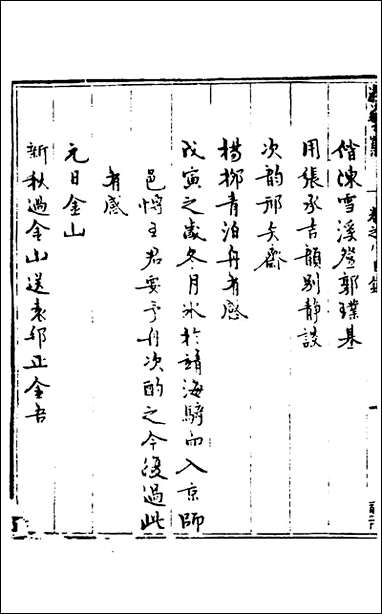 偕陳雪溪登郭璞墓
用張承吉韻別靜談
次韵邢矣齋
楊柳青泊舟有感
戊寅之歲冬月氷於靖海騎而入京師
邑愽王君要予舟次酌之今復過此
有感
元日金山
新秋過金山送袁邦正金吾